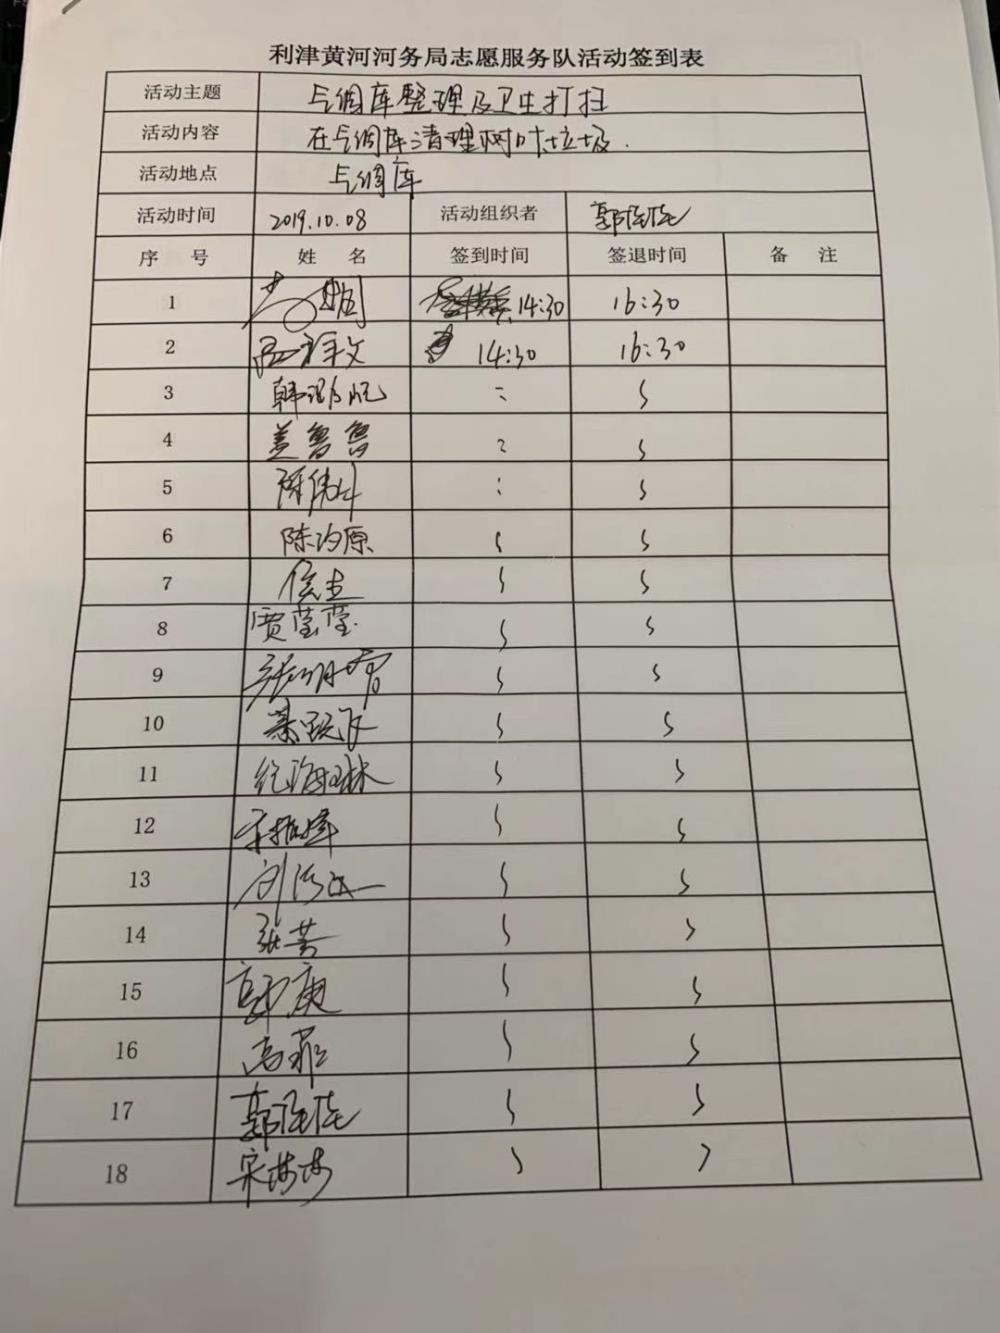 利津黄河河务局志愿服务队活动签到表
活动主题 气调库整理及卫生打扫
活动内容 在气调库清理树叶垃圾.
活动地点 气调库
活动时间 2019.10.08 活动组织者 郭佳佳
序 号 姓 名 签到时间 签退时间 备 注
1 14:30 16:30
2 14:30 16:30
3 韩
4 盖鲁鲁
5 陈伟
6 陈汐原
7 侯
8 贾莹莹
9 张
10
11 纪海琳
12
13 刘
14 张芳
15 郭庚
16 高菲
17 郭佳佳
18 宋娜娜